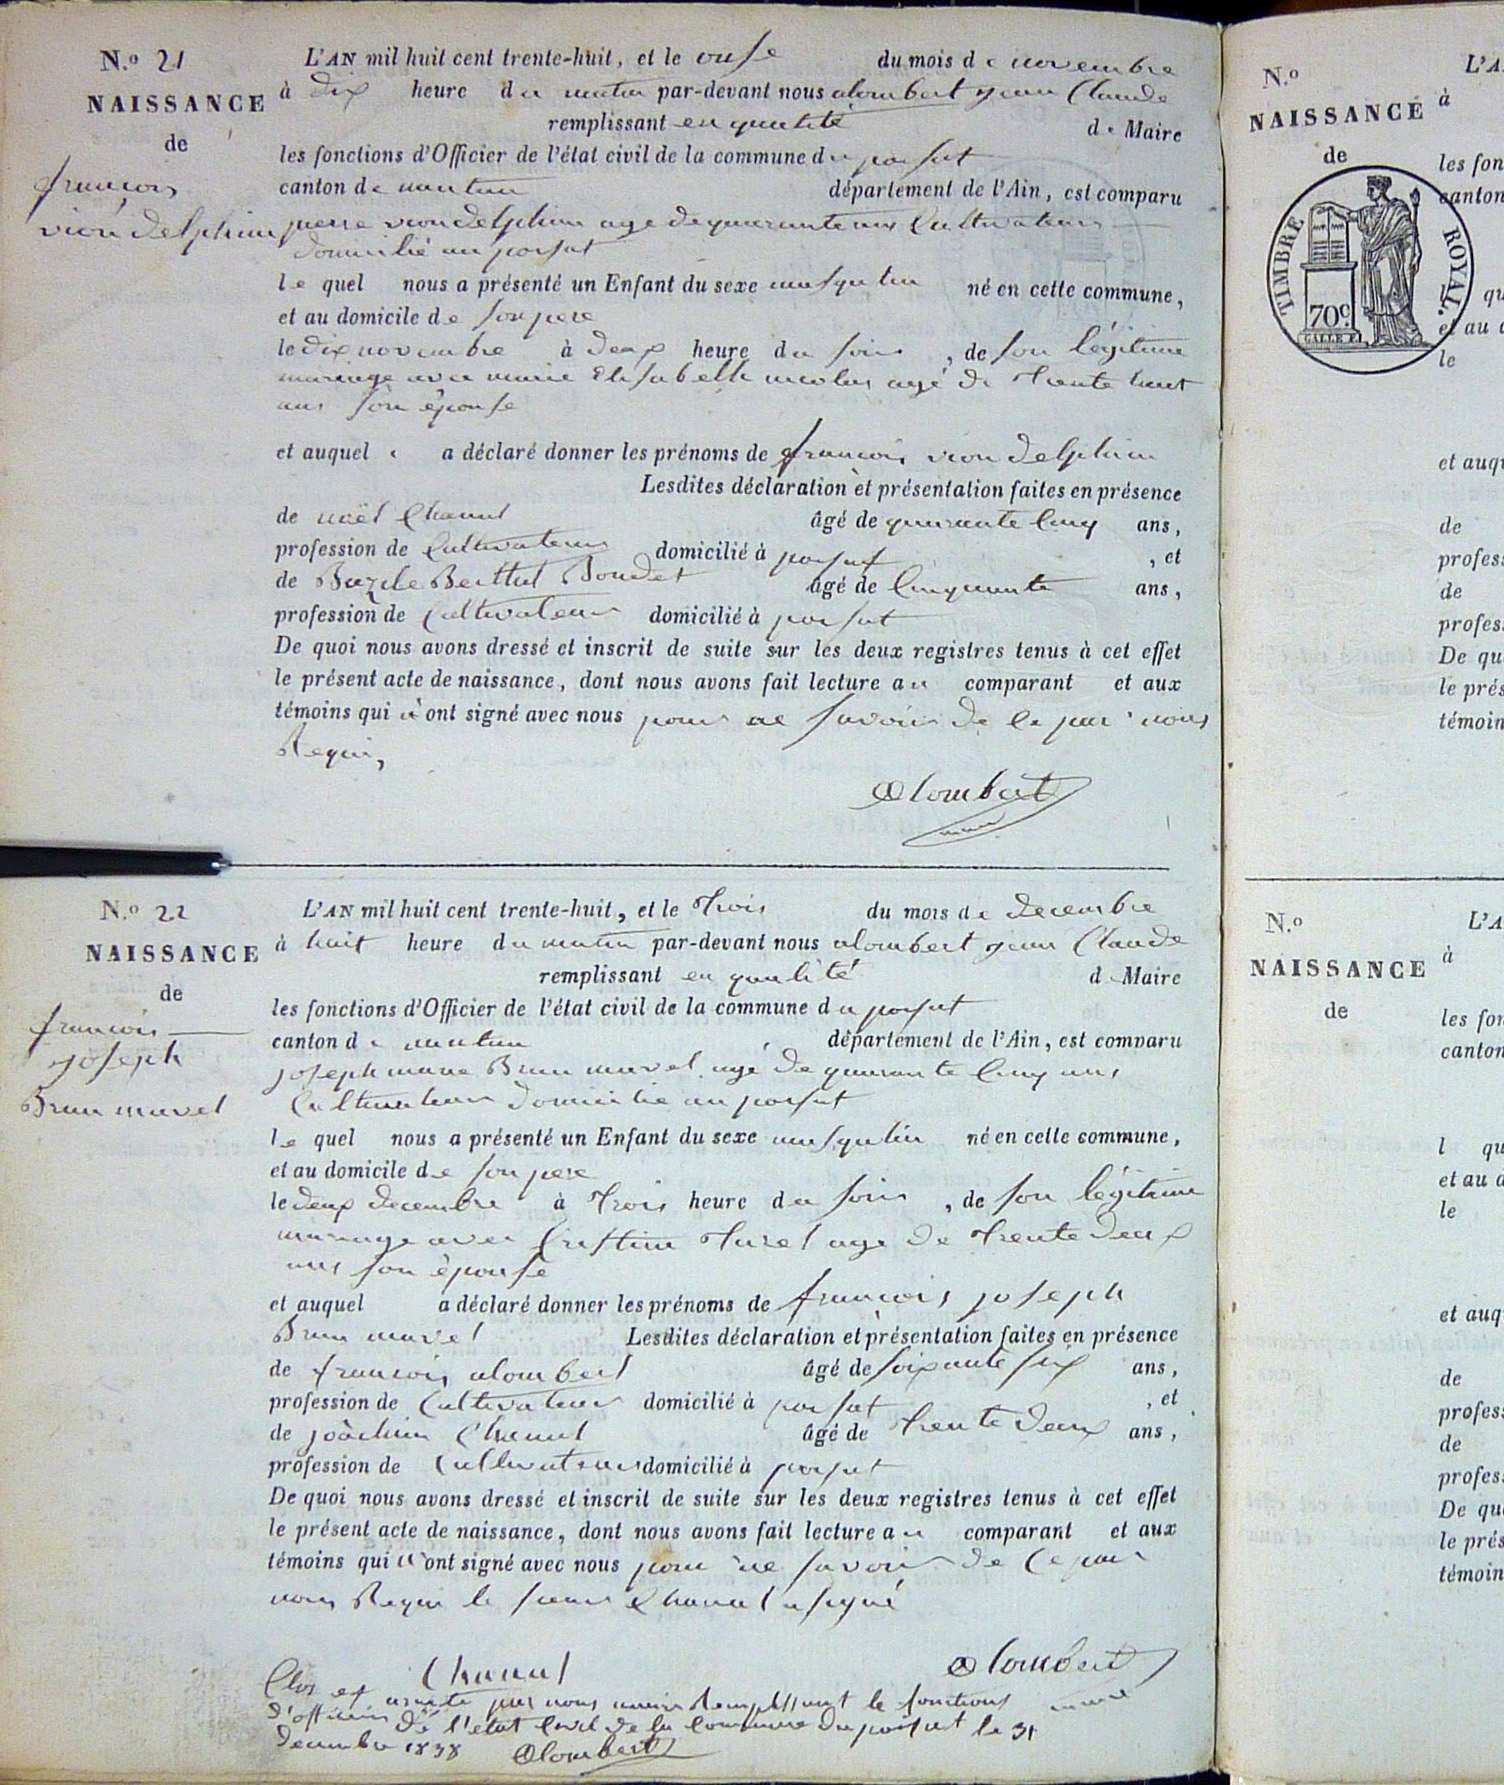 N.º 21
NAISSANCE
de
françois
vion delphin
L'AN mil huit cent trente-huit, et le onse du mois de novembre
à dix heure du matin par-devant nous alombert jean Claude
remplissant en qualité de Maire
les fonctions d'Officier de l'état civil de la commune du poisat
canton de nantua département de l'Ain, est comparu
pierre vion delphin age de quarante ans Cultivateur
domicilié au poisat
le quel nous a présenté un Enfant du sexe masqulin né en cette commune,
et au domicile de son pere
le dix novembre à deux heure du soir, de son légitime
mariage avec marie Elisabeth nicolas agé de trente huit
ans son épouse
et auquel a déclaré donner les prénoms de françois vion delphin
Lesdites déclaration et présentation faites en présence
de noël Chanut âgé de quarante Cinq ans,
profession de Cultivateur domicilié à poisat, et
de Bazile Berthet Bondet âgé de Cinquante ans,
profession de Cultivateur domicilié à poisat
De quoi nous avons dressé et inscrit de suite sur les deux registres tenus à cet effet
le présent acte de naissance, dont nous avons fait lecture au comparant et aux
témoins qui n'ont signé avec nous pour ne savoir de Ce par nous
Requi,
Alombert
maire
N.º 22
NAISSANCE
de
françois
joseph
Brun marvel
L'AN mil huit cent trente-huit, et le trois du mois de decembre
à huit heure du matin par-devant nous alombert jean Claude
remplissant en qualité d Maire
les fonctions d'Officier de l'état civil de la commune du poisat
canton de nantua, département de l'Ain, est comparu
joseph marie Brun marvel agé de quarante Cinq ans
Cultivateur domicilié au poisat
le quel nous a présenté un Enfant du sexe masqulin né en cette commune,
et au domicile de son pere
le deux decembre à trois heure du soir, de son légitime
mariage avec Cristine Turel age de trente deux
ans son épouse
et auquel a déclaré donner les prénoms de françois joseph
Brun marvel Lesdites déclaration et présentation faites en présence
de françois alombert âgé de soixante six ans,
profession de Cultivateur domicilié à poisat, et
de joachim Chanut âgé de trente deux ans,
profession de Cultivateur domicilié à poisat
De quoi nous avons dressé et inscrit de suite sur les deux registres tenus à cet effet
le présent acte de naissance, dont nous avons fait lecture au comparant et aux
témoins qui n'ont signé avec nous pour ne savoir de Ce par
nous Requi le sieur Chanut a signé
Chanut
Alombert
maire
Clos et arrete par nous maire Remplissant le fonctions
d'officier de l'état Civil de la Commune du poisat le 31
decembre 1838 Alombert
N.º
NAISSANCE
de
TIMBRE ROYAL.
70c
L'A
à
les fon
canton
l qu
et au d
le
et auqu
de
profess
de
profess
De qu
le prés
témoin
N.º
NAISSANCE
de
L'A
à
les fon
canton
l qu
et au d
le
et auq
de
profess
de
profess
De qu
le prés
témoin